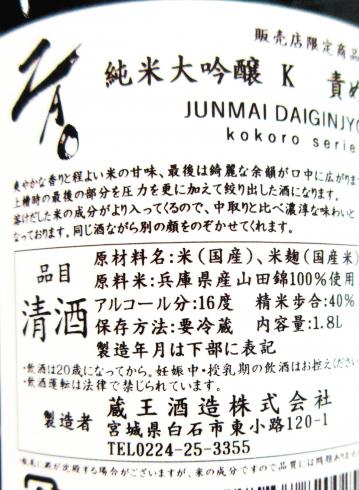 販売店限定商品
ZAO
純米大吟醸 K 責め
JUNMAI DAIGINJYO
kokoro serie
爽やかな香りと程よい米の甘味、最後は綺麗な余韻が口中に広がります
上槽時の最後の部分を圧力を更に加えて搾り出した酒になります。
溶けだした米の成分がより入ってくるので、中取りと比べ濃淳な味わいと
なっております。同じ酒ながら別の顔をのぞかせてくれます。
品目
清酒
原材料名:米(国産)、米麹(国産米)
原料米:兵庫県産山田錦100%使用
アルコール分:16度 精米歩合:40%
保存方法:要冷蔵 内容量:1.8L
製造年月は下部に表記
・飲酒は20歳になってから。妊娠中・授乳期の飲酒はお控えください
・飲酒運転は法律で禁じられています。
製造者 蔵王酒造株式会社
宮城県白石市東小路120-1
TEL0224-25-3355